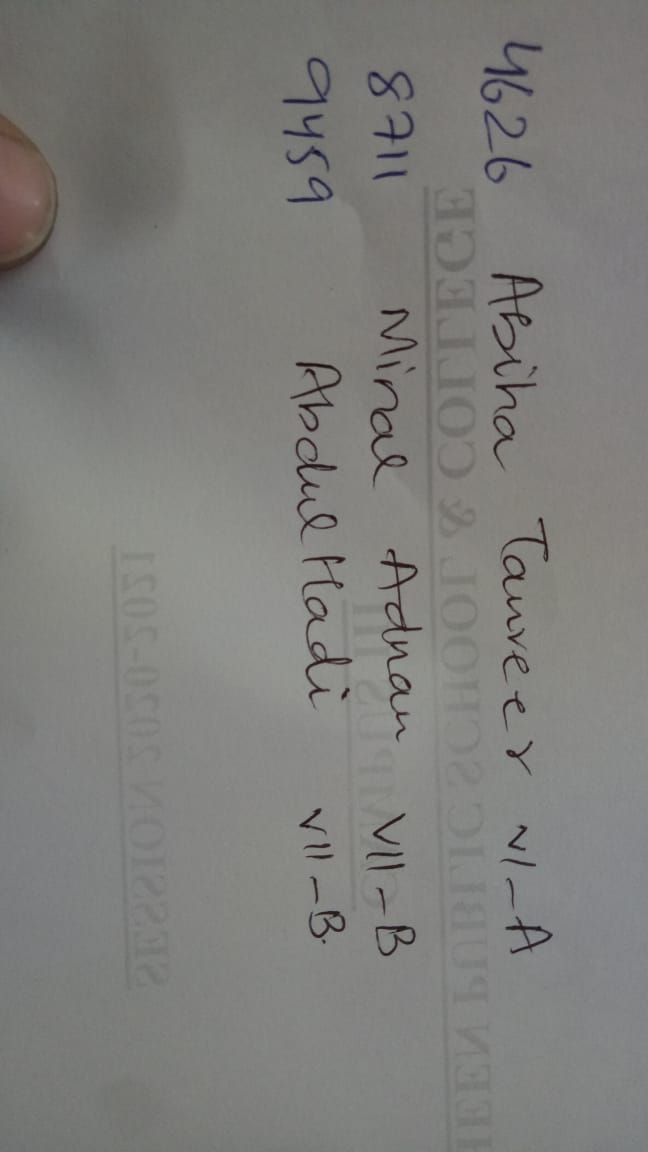 4626 Absiha Tanveer VI-A
8711 Minal Adnan VII-B
9459 Abdul Hadi VII-B.
HEEN PUBLIC SCHOOL & COLLEGE
CAMPUS III
SESSION 2020-2021